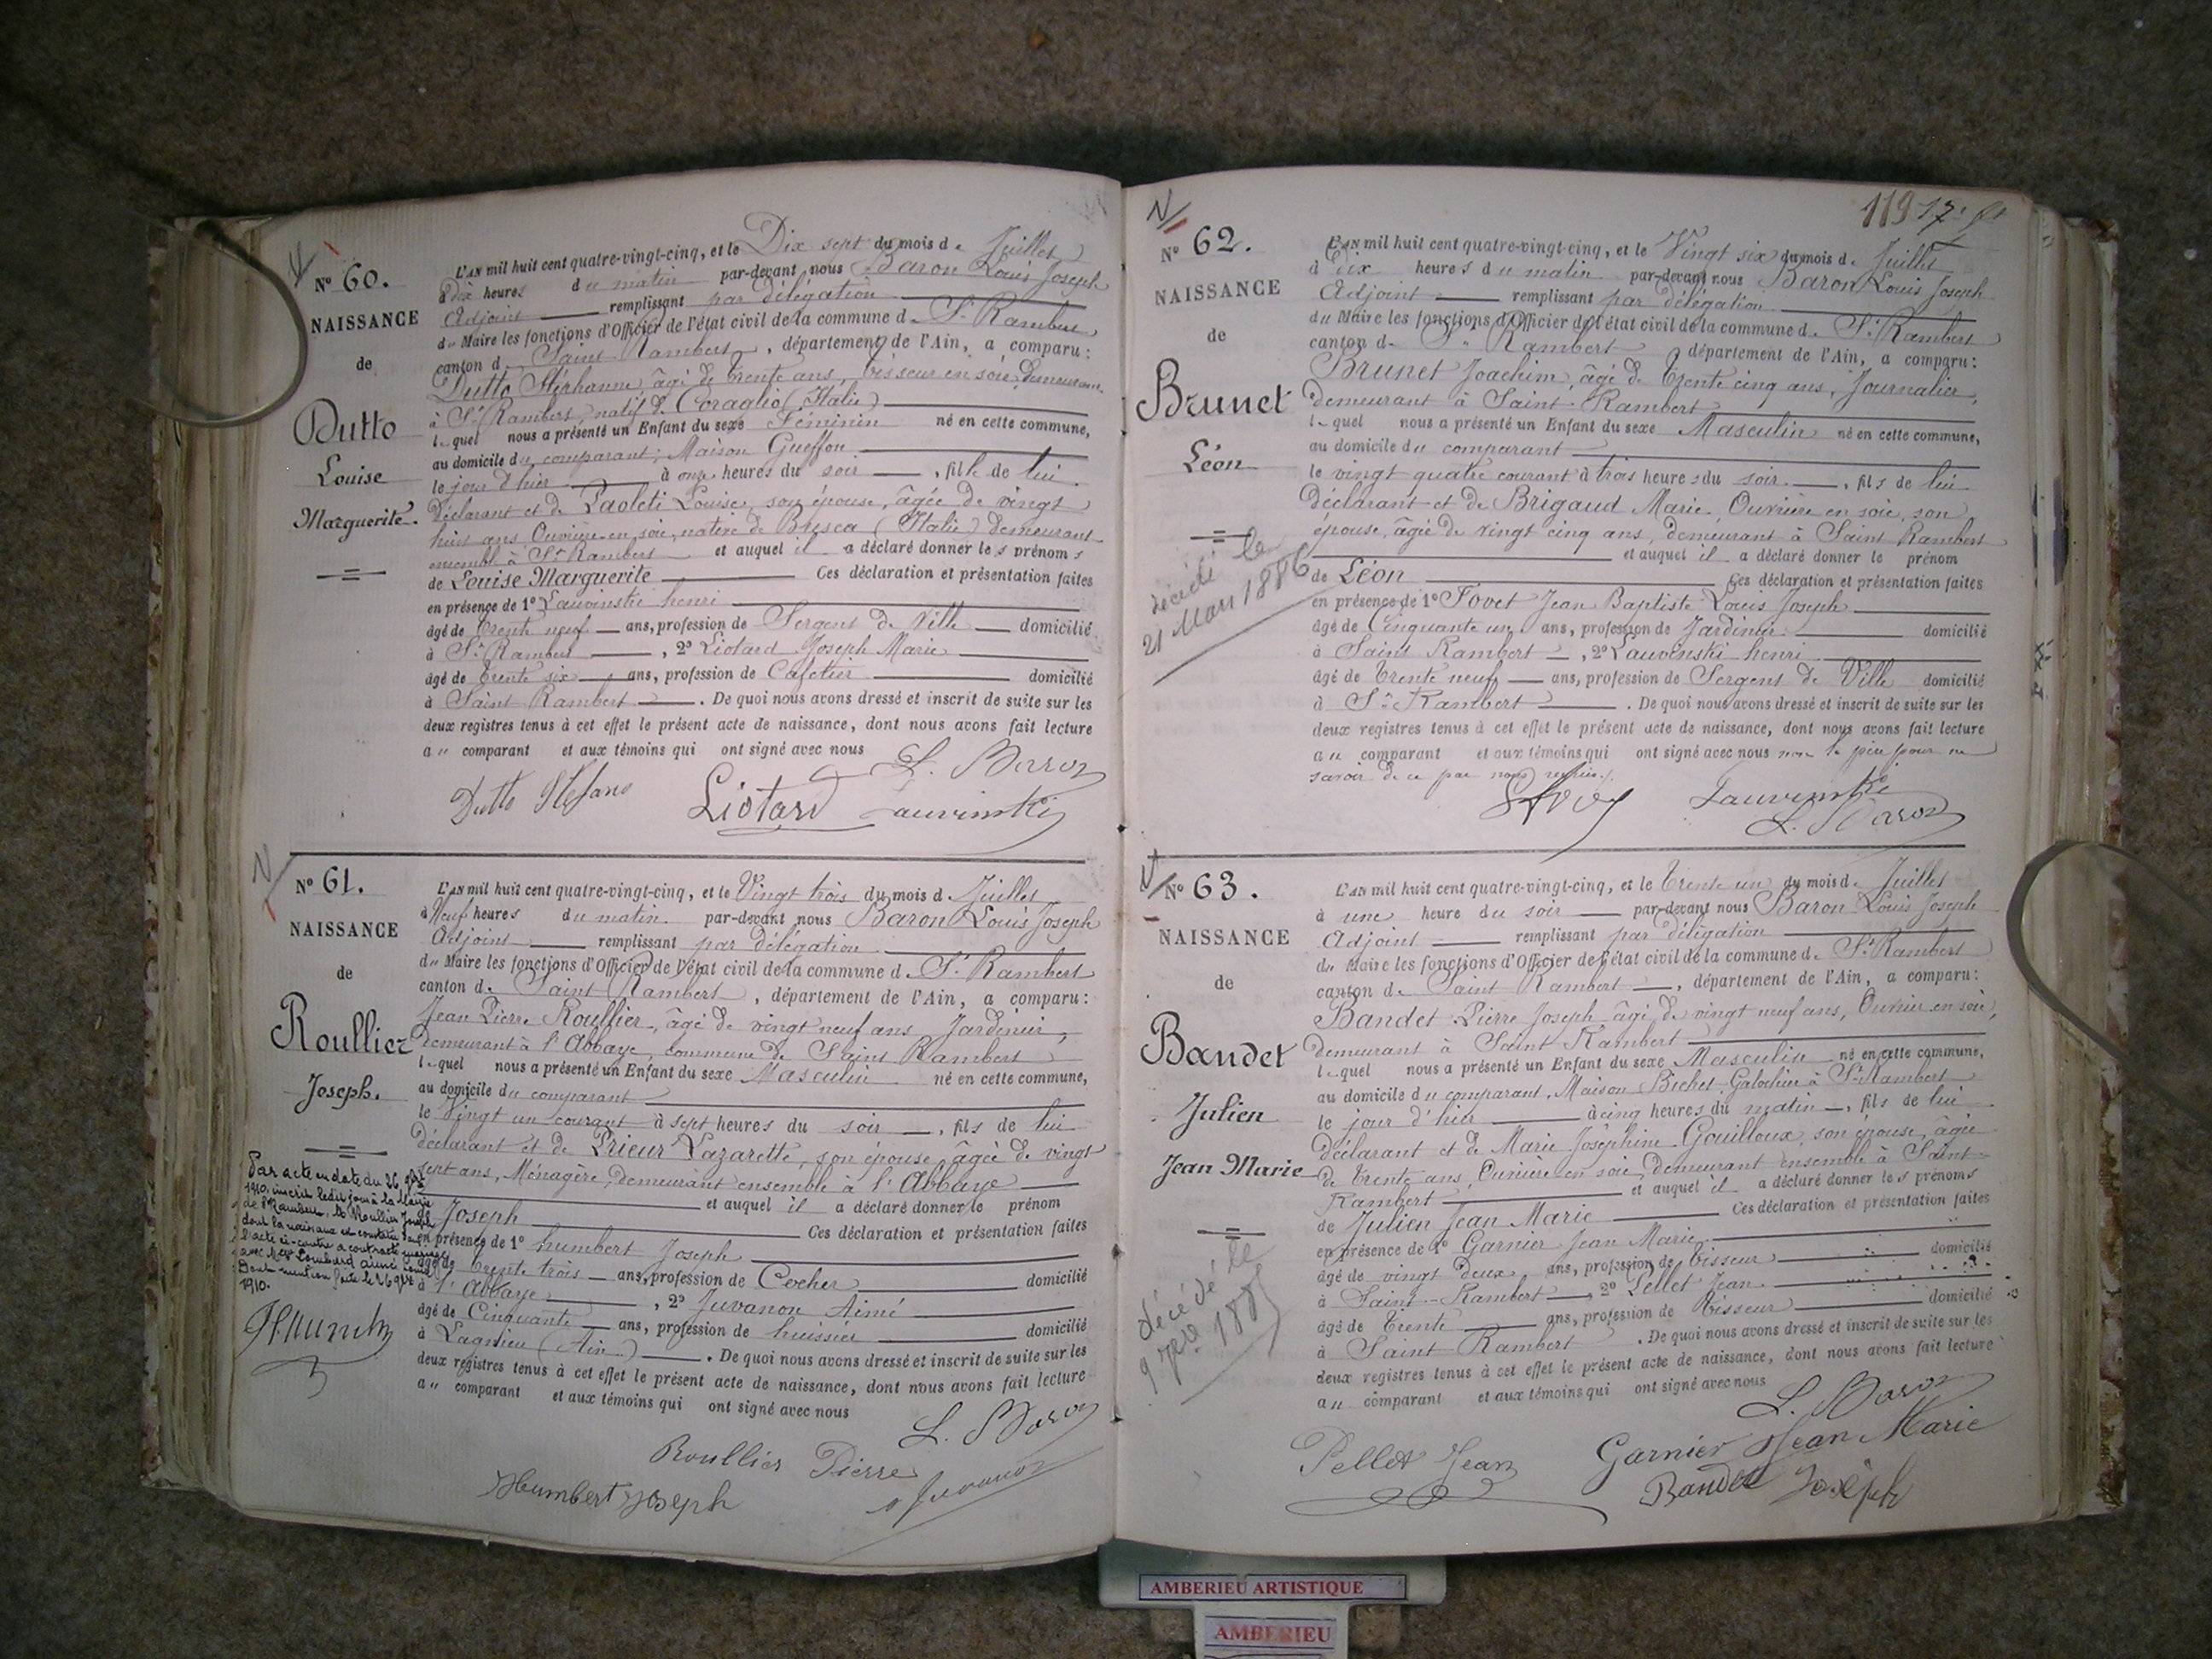 Nº 60.
NAISSANCE
de
Dutto
Louise
Marguerite.
L'AN mil huit cent quatre-vingt-cinq, et le Dix sept du mois de Juillet
à Dix heures du matin par-devant nous Baron Louis Joseph
Adjoint remplissant par délégation
du Maire les fonctions d'Officier de l'état civil de la commune de St Rambert
canton de Saint Rambert, département de l'Ain, a comparu:
Dutto Stéphanne, âgé de trente ans, tisseur en soie, demeurant
à St Rambert, natif de Coraglio (Italie)
lequel nous a présenté un Enfant du sexe Féminin né en cette commune,
au domicile du comparant, Maison Gueffon
le jour d'hier à onze heures du soir, fille de lui
déclarant et de Paoleti Louise, son épouse, âgée de vingt
huit ans, Ouvrière en soie, native de Bresca (Italie) demeurant
ensemble à St Rambert et auquel il a déclaré donner les prénoms
de Louise Marguerite Ces déclaration et présentation faites
en présence de 1º Lauvinski henri
âgé de trente neuf ans, profession de Sergent de Ville domicilié
à St Rambert, 2º Liotard Joseph Marie
âgé de trente six ans, profession de Cafetier domicilié
à Saint Rambert. De quoi nous avons dressé et inscrit de suite sur les
deux registres tenus à cet effet le présent acte de naissance, dont nous avons fait lecture
au comparant et aux témoins qui ont signé avec nous
L. Baron
Dutto Stefano Liotard Lauvinski
Nº 61.
NAISSANCE
de
Roullier
Joseph.
Par acte en date du 26 9bre
1910, inscrit ledit jour à la Mairie
de St Rambert, le Roullier Joseph
dont la naissance est constatée par
l'acte ci-contre a contracté mariage
avec Lombard
Dont mention faite le 26 9bre
1910.
L'AN mil huit cent quatre-vingt-cinq, et le Vingt trois du mois de Juillet
à Neuf heures du matin par-devant nous Baron Louis Joseph
Adjoint remplissant par délégation
du Maire les fonctions d'Officier de l'état civil de la commune de St Rambert
canton de Saint Rambert, département de l'Ain, a comparu:
Jean Pierre Roullier, âgé de vingt neuf ans, Jardinier,
demeurant à l'Abbaye, commune de Saint Rambert
lequel nous a présenté un Enfant du sexe Masculin né en cette commune,
au domicile du comparant
le Vingt un courant à sept heures du soir, fils de lui
déclarant et de Prieur Lazarette, son épouse, âgée de vingt
sept ans, Ménagère, demeurant ensemble à l'Abbaye
et auquel il a déclaré donner le prénom
de Joseph Ces déclaration et présentation faites
en présence de 1º humbert Joseph
âgé de trente trois ans, profession de Cocher domicilié
à l'Abbaye, 2º Juvanon Aimé
âgé de Cinquante ans, profession de huissier domicilié
à Lagnieu (Ain). De quoi nous avons dressé et inscrit de suite sur les
deux registres tenus à cet effet le présent acte de naissance, dont nous avons fait lecture
au comparant et aux témoins qui ont signé avec nous
L. Baron
Roullier Pierre
Humbert Joseph Juvanon
119
Nº 62.
NAISSANCE
de
Brunet
Léon
décédé le
21 Mars 1886
L'AN mil huit cent quatre-vingt-cinq, et le Vingt six du mois de Juillet
à Dix heures du matin par-devant nous Baron Louis Joseph
Adjoint remplissant par délégation
du Maire les fonctions d'Officier de l'état civil de la commune de St Rambert
canton de St Rambert département de l'Ain, a comparu:
Brunet Joachim, âgé de trente cinq ans, Journalier,
demeurant à Saint-Rambert
lequel nous a présenté un Enfant du sexe Masculin né en cette commune,
au domicile du comparant
le vingt quatre courant à trois heures du soir, fils de lui
déclarant et de Brigaud Marie, Ouvrière en soie, son
épouse, âgée de vingt cinq ans, demeurant à Saint Rambert
et auquel il a déclaré donner le prénom
de Léon Ces déclaration et présentation faites
en présence de 1º Fovet Jean Baptiste Louis Joseph
âgé de Cinquante un ans, profession de Jardinier domicilié
à Saint Rambert, 2º Lauvinski henri
âgé de trente neuf ans, profession de Sergent de Ville domicilié
à St Rambert. De quoi nous avons dressé et inscrit de suite sur les
deux registres tenus à cet effet le présent acte de naissance, dont nous avons fait lecture
au comparant et aux témoins qui ont signé avec nous non le père pour ne
savoir de ce par nous requis.
Lauvinski
L. Baron
Nº 63.
NAISSANCE
de
Bandet
Julien
Jean Marie
décédé le
9 7bre 1885
L'AN mil huit cent quatre-vingt-cinq, et le trente un du mois de Juillet
à une heure du soir par-devant nous Baron Louis Joseph
Adjoint remplissant par délégation
du Maire les fonctions d'Officier de l'état civil de la commune de St Rambert
canton de Saint Rambert, département de l'Ain, a comparu:
Bandet Pierre Joseph âgé de vingt neuf ans, Ouvrier en soie,
demeurant à Saint Rambert
lequel nous a présenté un Enfant du sexe Masculin né en cette commune,
au domicile du comparant, Maison Bichet, Galochier à St Rambert
le jour d'hier à cinq heures du matin, fils de lui
déclarant et de Marie Joséphine Gouilloux, son épouse, âgée
de trente ans, Ouvrière en soie, demeurant ensemble à Saint
Rambert et auquel il a déclaré donner les prénoms
de Julien Jean Marie Ces déclaration et présentation faites
en présence de 1º Garnier Jean Marie
âgé de vingt deux ans, profession de tisseur domicilié
à Saint-Rambert, 2º Pellet Jean
âgé de trente ans, profession de tisseur domicilié
à Saint Rambert. De quoi nous avons dressé et inscrit de suite sur les
deux registres tenus à cet effet le présent acte de naissance, dont nous avons fait lecture
au comparant et aux témoins qui ont signé avec nous
L. Baron
Pellet Jean Garnier Jean Marie
Bandet Joseph
AMBERIEU ARTISTIQUE
AMBERIEU